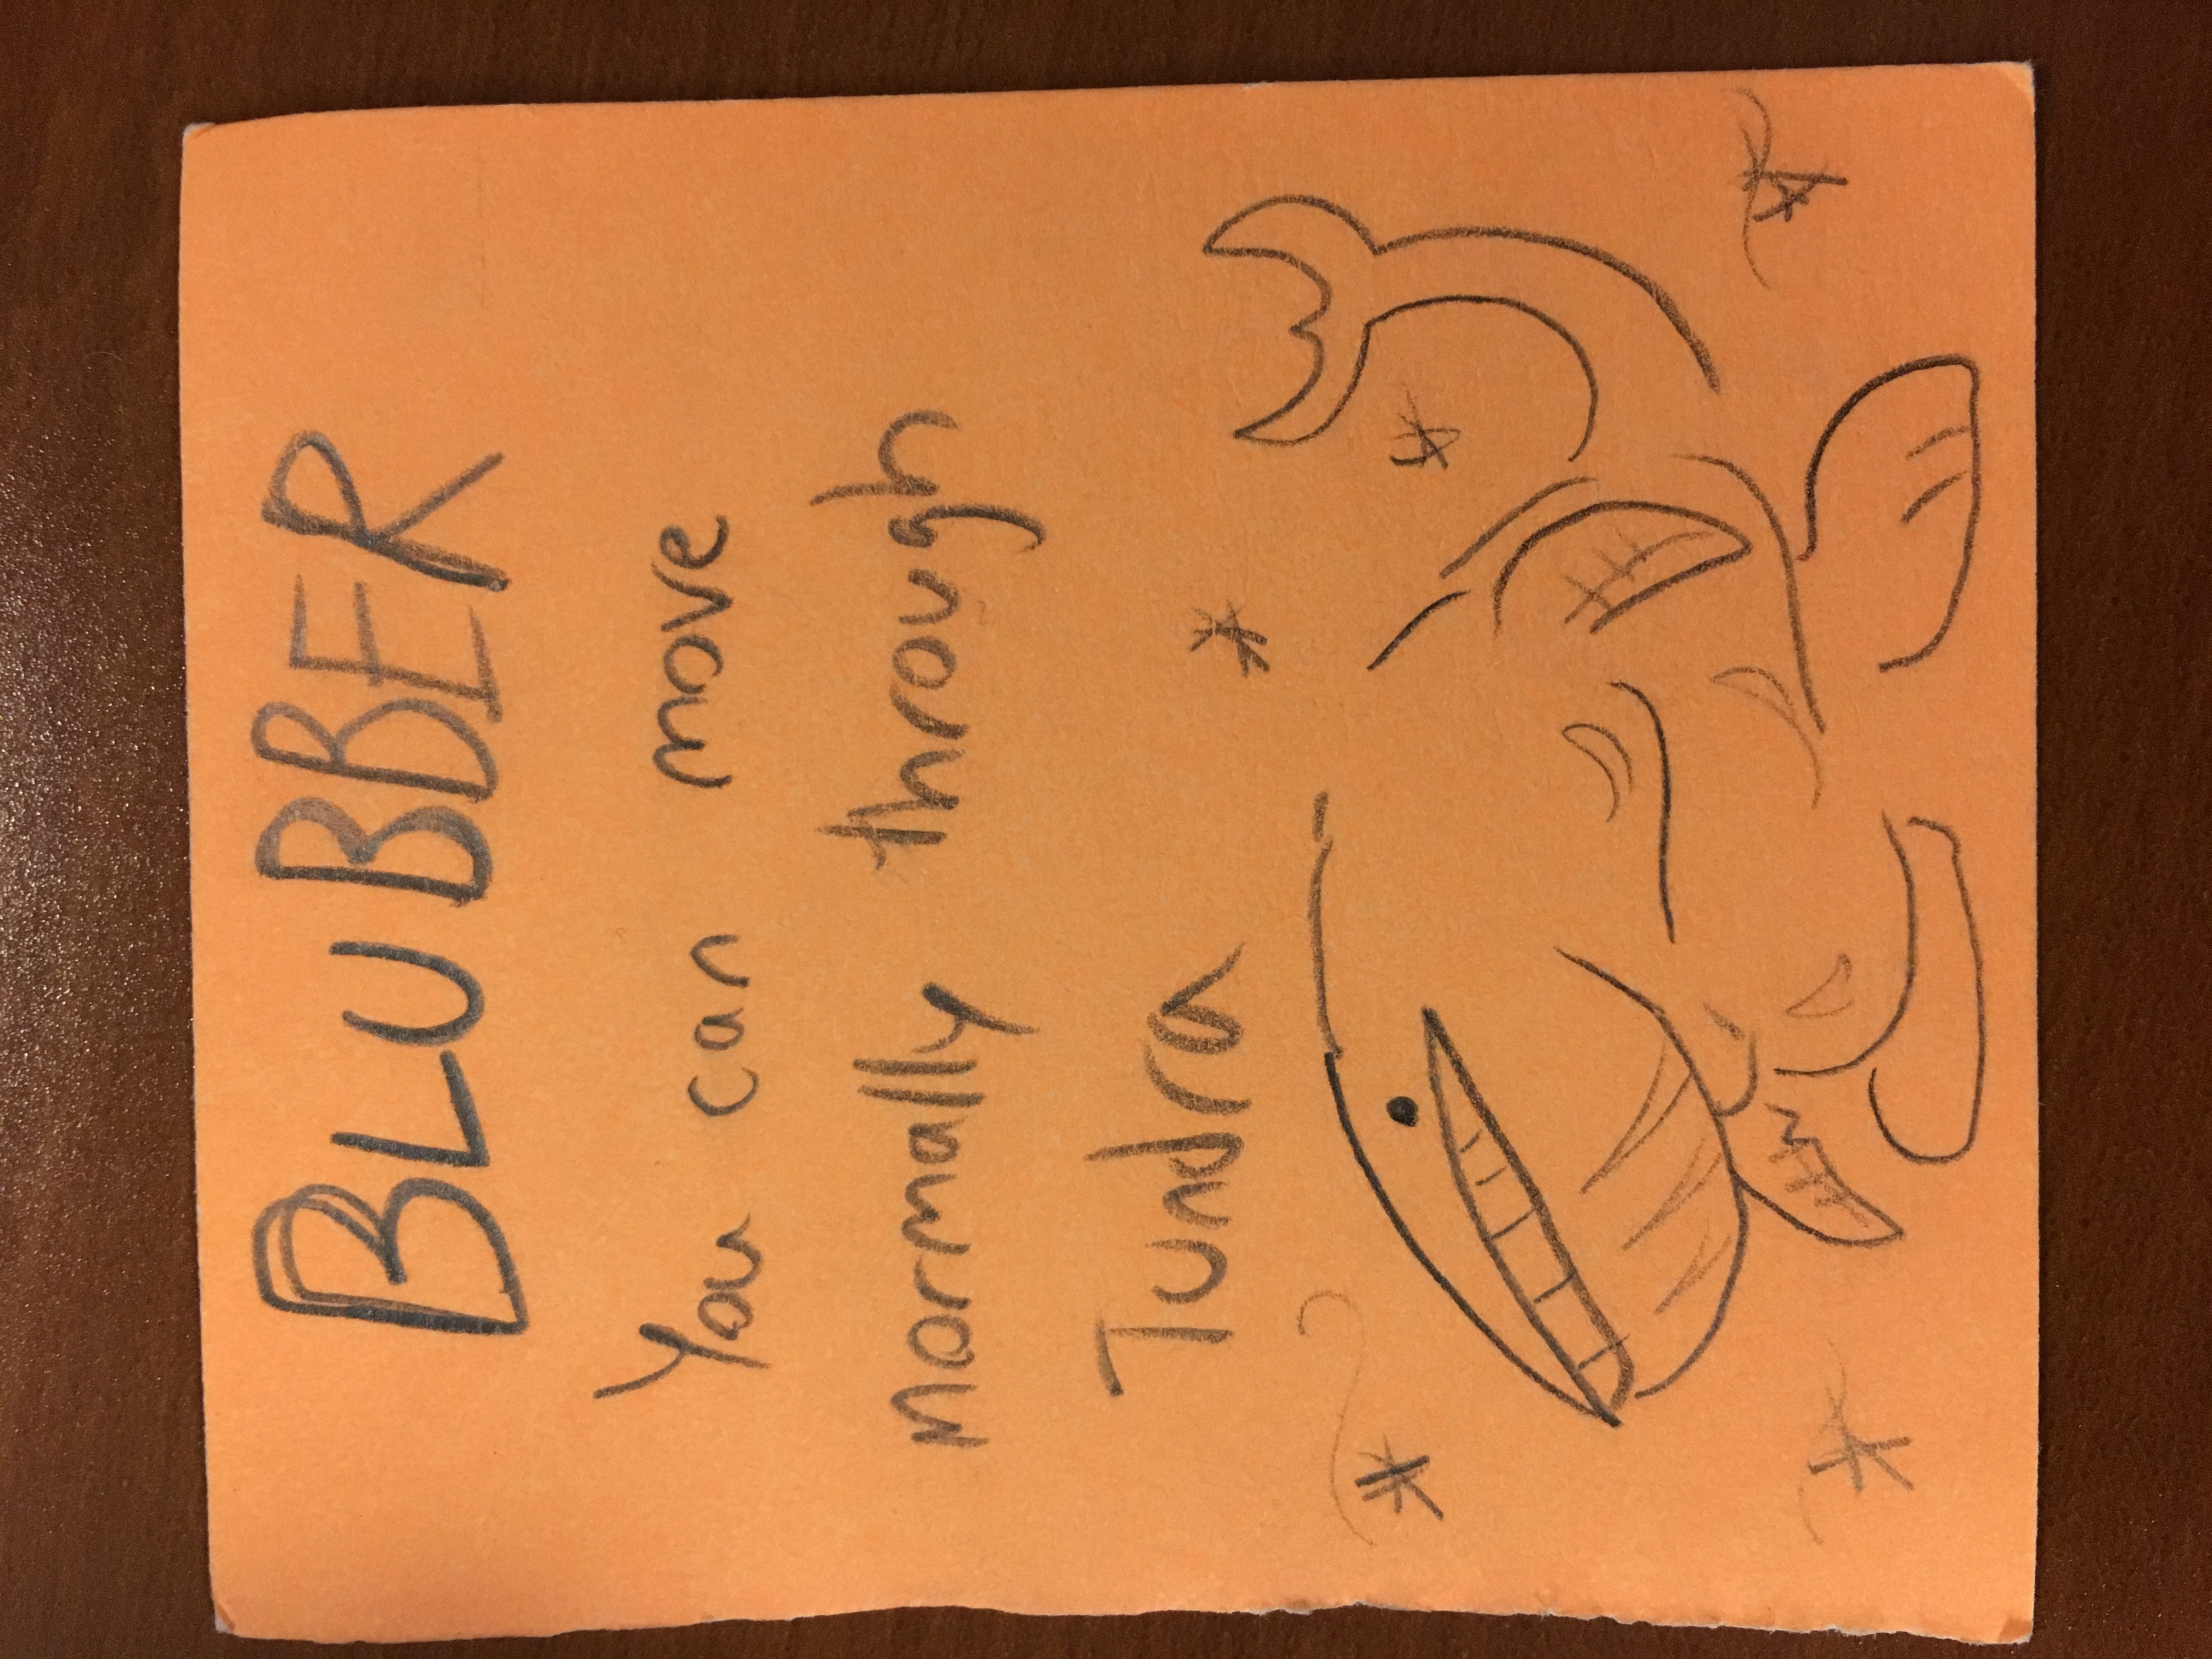 BLUBBER
You can move
normally through
Tundra